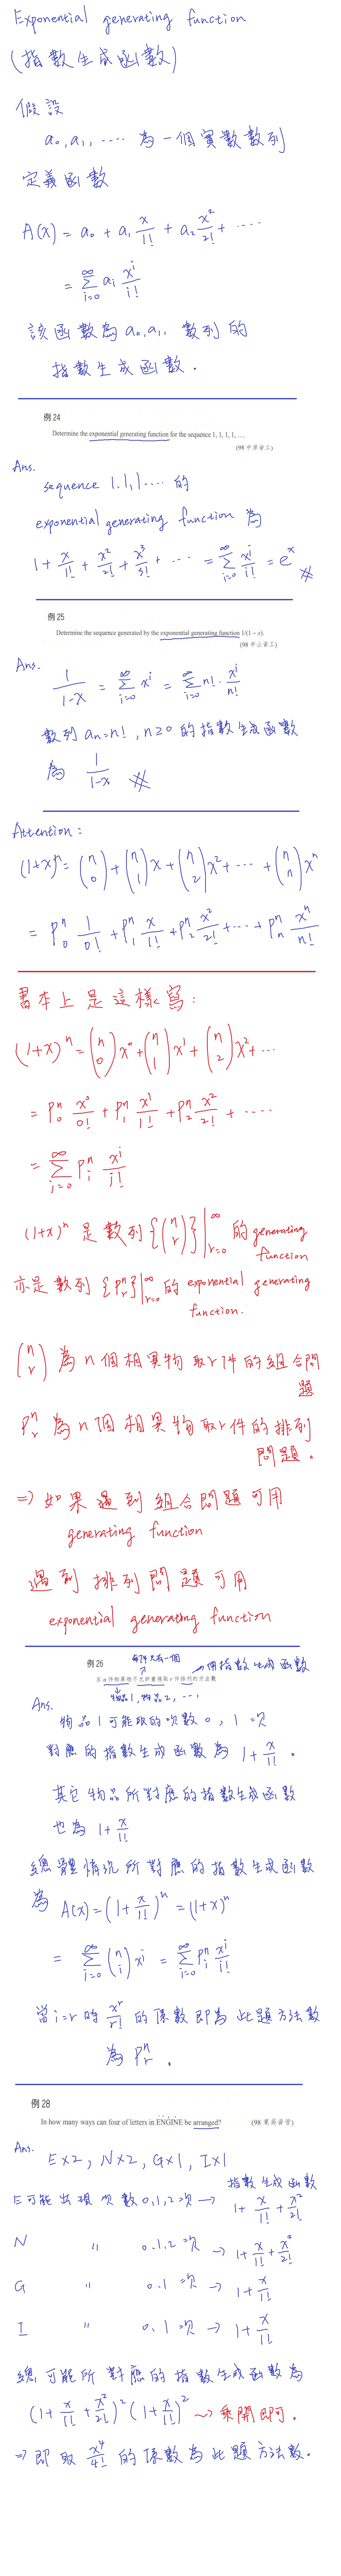 Exponential generating function
(指數生成函數)
假設
a₀, a₁, ‥‥ 為一個實數數列
定義函數
A(x) = a₀ + a₁ x/1! + a₂ x²/2! + ‥‥
= ∑_{i=0}^{∞} aᵢ xⁱ/i!
該函數為 a₀, a₁, 數列的
指數生成函數.
例 24
Determine the exponential generating function for the sequence 1, 1, 1, 1, ....
(98 中原資工)
Ans.
sequence 1.1,1‥‥ 的
exponential generating function 為
1 + x/1! + x²/2! + x³/3! + ‥‥ = ∑_{i=0}^{∞} xⁱ/i! = eˣ #
例 25
Determine the sequence generated by the exponential generating function 1/(1 − x).
(98 中山資工)
Ans.
1/(1-x) = ∑_{i=0}^{∞} xⁱ = ∑_{i=0}^{∞} n! · xⁱ/n!
數列 aₙ=n!, n≥0 的指數生成函數
為 1/(1-x) #
Attention:
(1+x)ⁿ = (n 0) + (n 1)x + (n 2)x² + ‥‥ + (n n)xⁿ
= P₀ⁿ 1/0! + P₁ⁿ x/1! + P₂ⁿ x²/2! + ‥‥ + Pₙⁿ xⁿ/n!
書本上是這樣寫:
(1+x)ⁿ = (n 0)x⁰ + (n 1)x¹ + (n 2)x² + ‥‥
= P₀ⁿ x⁰/0! + P₁ⁿ x¹/1! + P₂ⁿ x²/2! + ‥‥
= ∑_{i=0}^{∞} Pᵢⁿ xⁱ/i!
(1+x)ⁿ 是數列 {(n r)}|_{r=0}^{∞} 的 generating
function
亦是數列 {Pᵣⁿ}|_{r=0}^{∞} 的 exponential generating
function.
(n r) 為 n 個相異物取 r 件的組合問
題
Pᵣⁿ 為 n 個相異物取 r 件的排列
問題.
=> 如果遇到組合問題可用
generating function
遇到排列問題可用
exponential generating function
每件只有一個
例 26
→用指數生成函數
在 n 件相異物不允許重複取 r 件排列的方法數
物品1, 物品2, ‥‥
Ans.
物品1可能取的次數 0, 1 次
對應的指數生成函數為 1 + x/1! .
其它物品所對應的指數生成函數
也為 1 + x/1!
總體情況所對應的指數生成函數
為 A(x) = (1 + x/1!)ⁿ = (1+x)ⁿ
= ∑_{i=0}^{∞} (n i) xⁱ = ∑_{i=0}^{∞} Pᵢⁿ xⁱ/i!
當 i=r 時 xʳ/r! 的係數即為此題方法數
為 Pᵣⁿ .
例 28
In how many ways can four of letters in ENGINE be arranged?
(98 東吳資管)
Ans.
E×2, N×2, G×1, I×1
指數生成函數
E可能出現次數 0,1,2次 → 1 + x/1! + x²/2!
N 〃 0.1.2次 → 1 + x/1! + x²/2!
G 〃 0.1次 → 1 + x/1!
I 〃 0.1次 → 1 + x/1!
總可能所對應的指數生成函數為
(1 + x/1! + x²/2!)² (1 + x/1!)² ~> 乘開即可.
=> 即取 x⁴/4! 的係數為此題方法數.